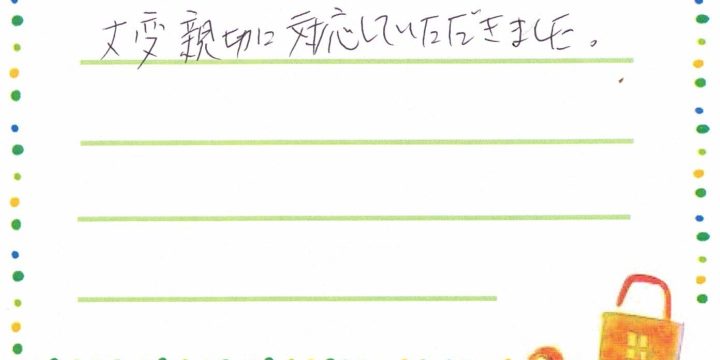 大変親切に対応していただきました。